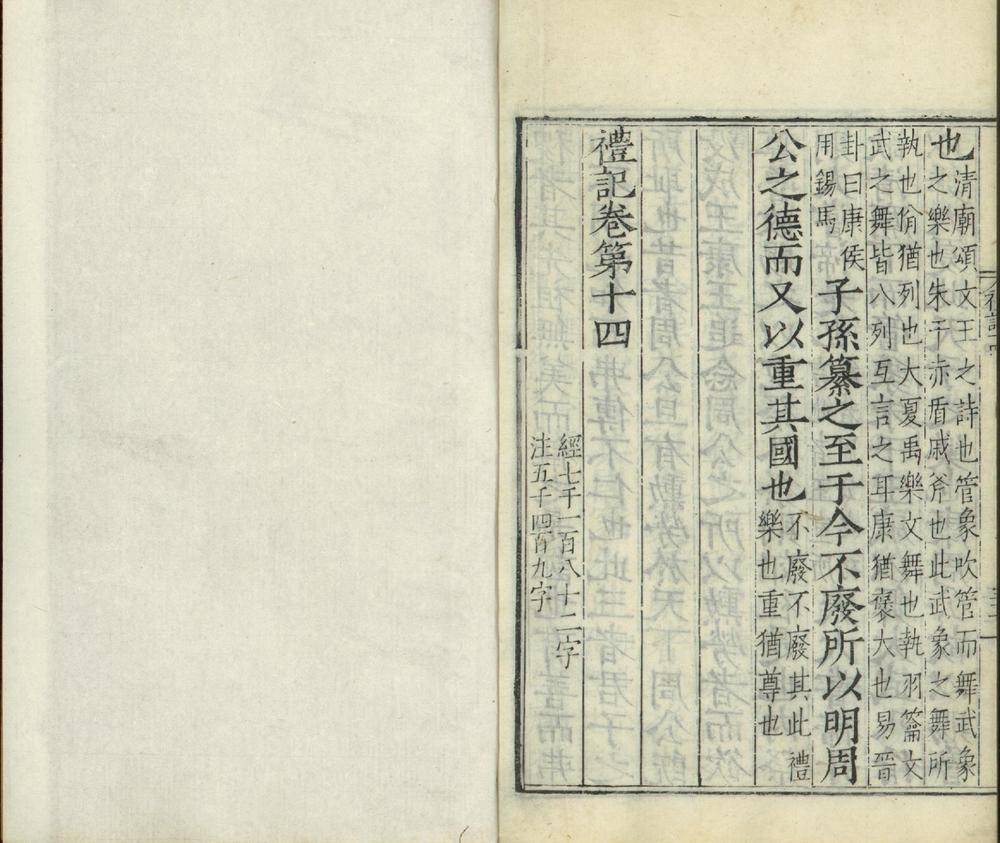 也
清廟頌文王之詩也管象吹管而舞武象
之樂也朱干赤盾戚斧也此武象之舞所
執也佾猶列也大夏禹樂文舞也執羽籥文
武之舞皆八列互言之耳康猶褒大也易晉
卦曰康侯
用錫馬
子孫纂之至于今不廢所以明周
公之德而又以重其國也
不廢不廢其此禮
樂也重猶尊也
禮記卷第十四
經七千一百八十二字
注五千四百九字